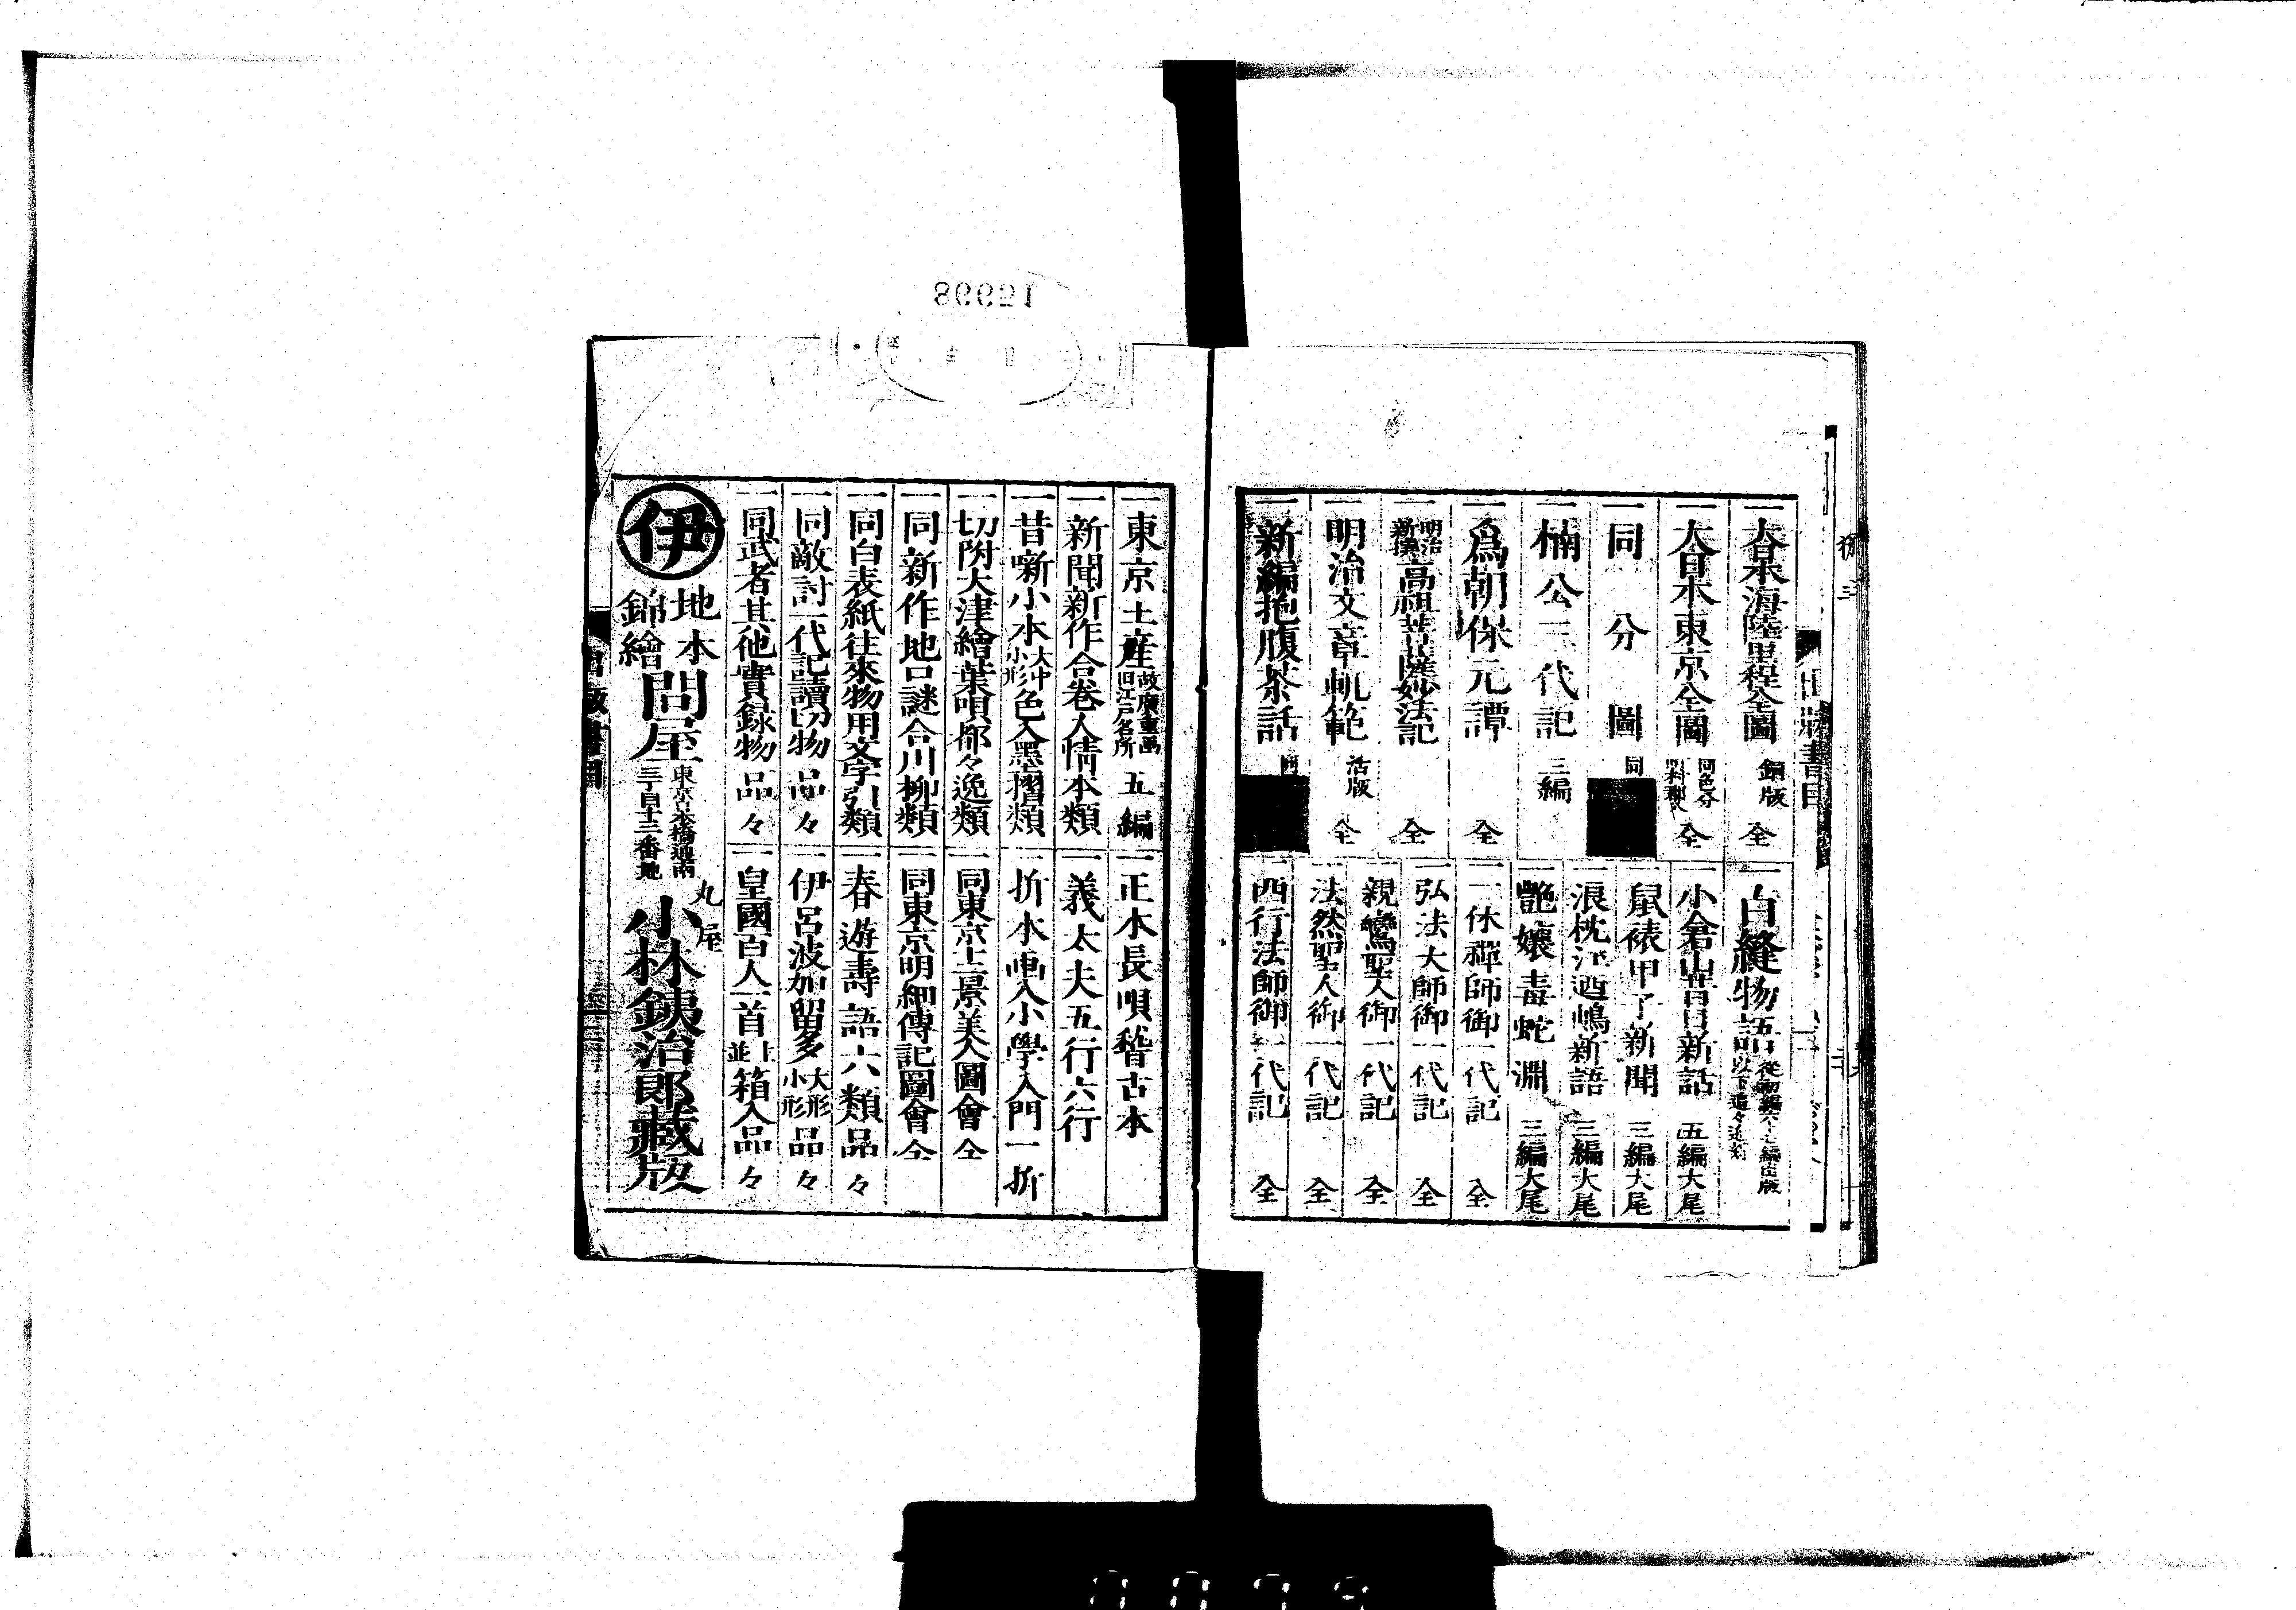 一大日本海陸里程全圖 銅版 全
一大日本東京全圖 同色分 全
一同分圖 同
一楠公三代記 三編
一爲朝保元譚 全
一明治新撰高祖菩薩妙法記 全
一明治文章軌範 活版 全
一新編抱腹茶話
一白縫物語 從初編六十七編出版 以下追々
一小倉山昔日新話 五編大尾
一鼠裱甲子新聞 三編大尾
一浪枕江酒嶋新語 三編大尾
一艶孃毒蛇淵 三編大尾
一一休禪師御一代記 全
一弘法大師御一代記 全
一親鸞聖人御一代記 全
一法然聖人御一代記 全
一西行法師御一代記 全
一東京土産 故廣重画 旧江戸名所 五編
一新聞新作合巻人情本類
一昔噺小本 大中小形 色入墨摺類
一切附大津繪葉唄都々逸類
一同新作地口謎合川柳類
一同白表紙往來物用文字引類
一同敵討一代記讀切物品々
一同武者其他實録物品々
一正本長唄稽古本
一義太夫五行六行
一折本画入小學入門一折
一同東京上景美人圖會全
一同東京明細傳記圖會全
一春遊壽語六類品々
一伊呂波加留多 大形 小形 品々
一皇國百人一首 上並 箱入品々
伊
地本
錦繪
問屋
東京日本橋通南
三丁目十三番地
丸屋
小林鉄治郎藏版
86651